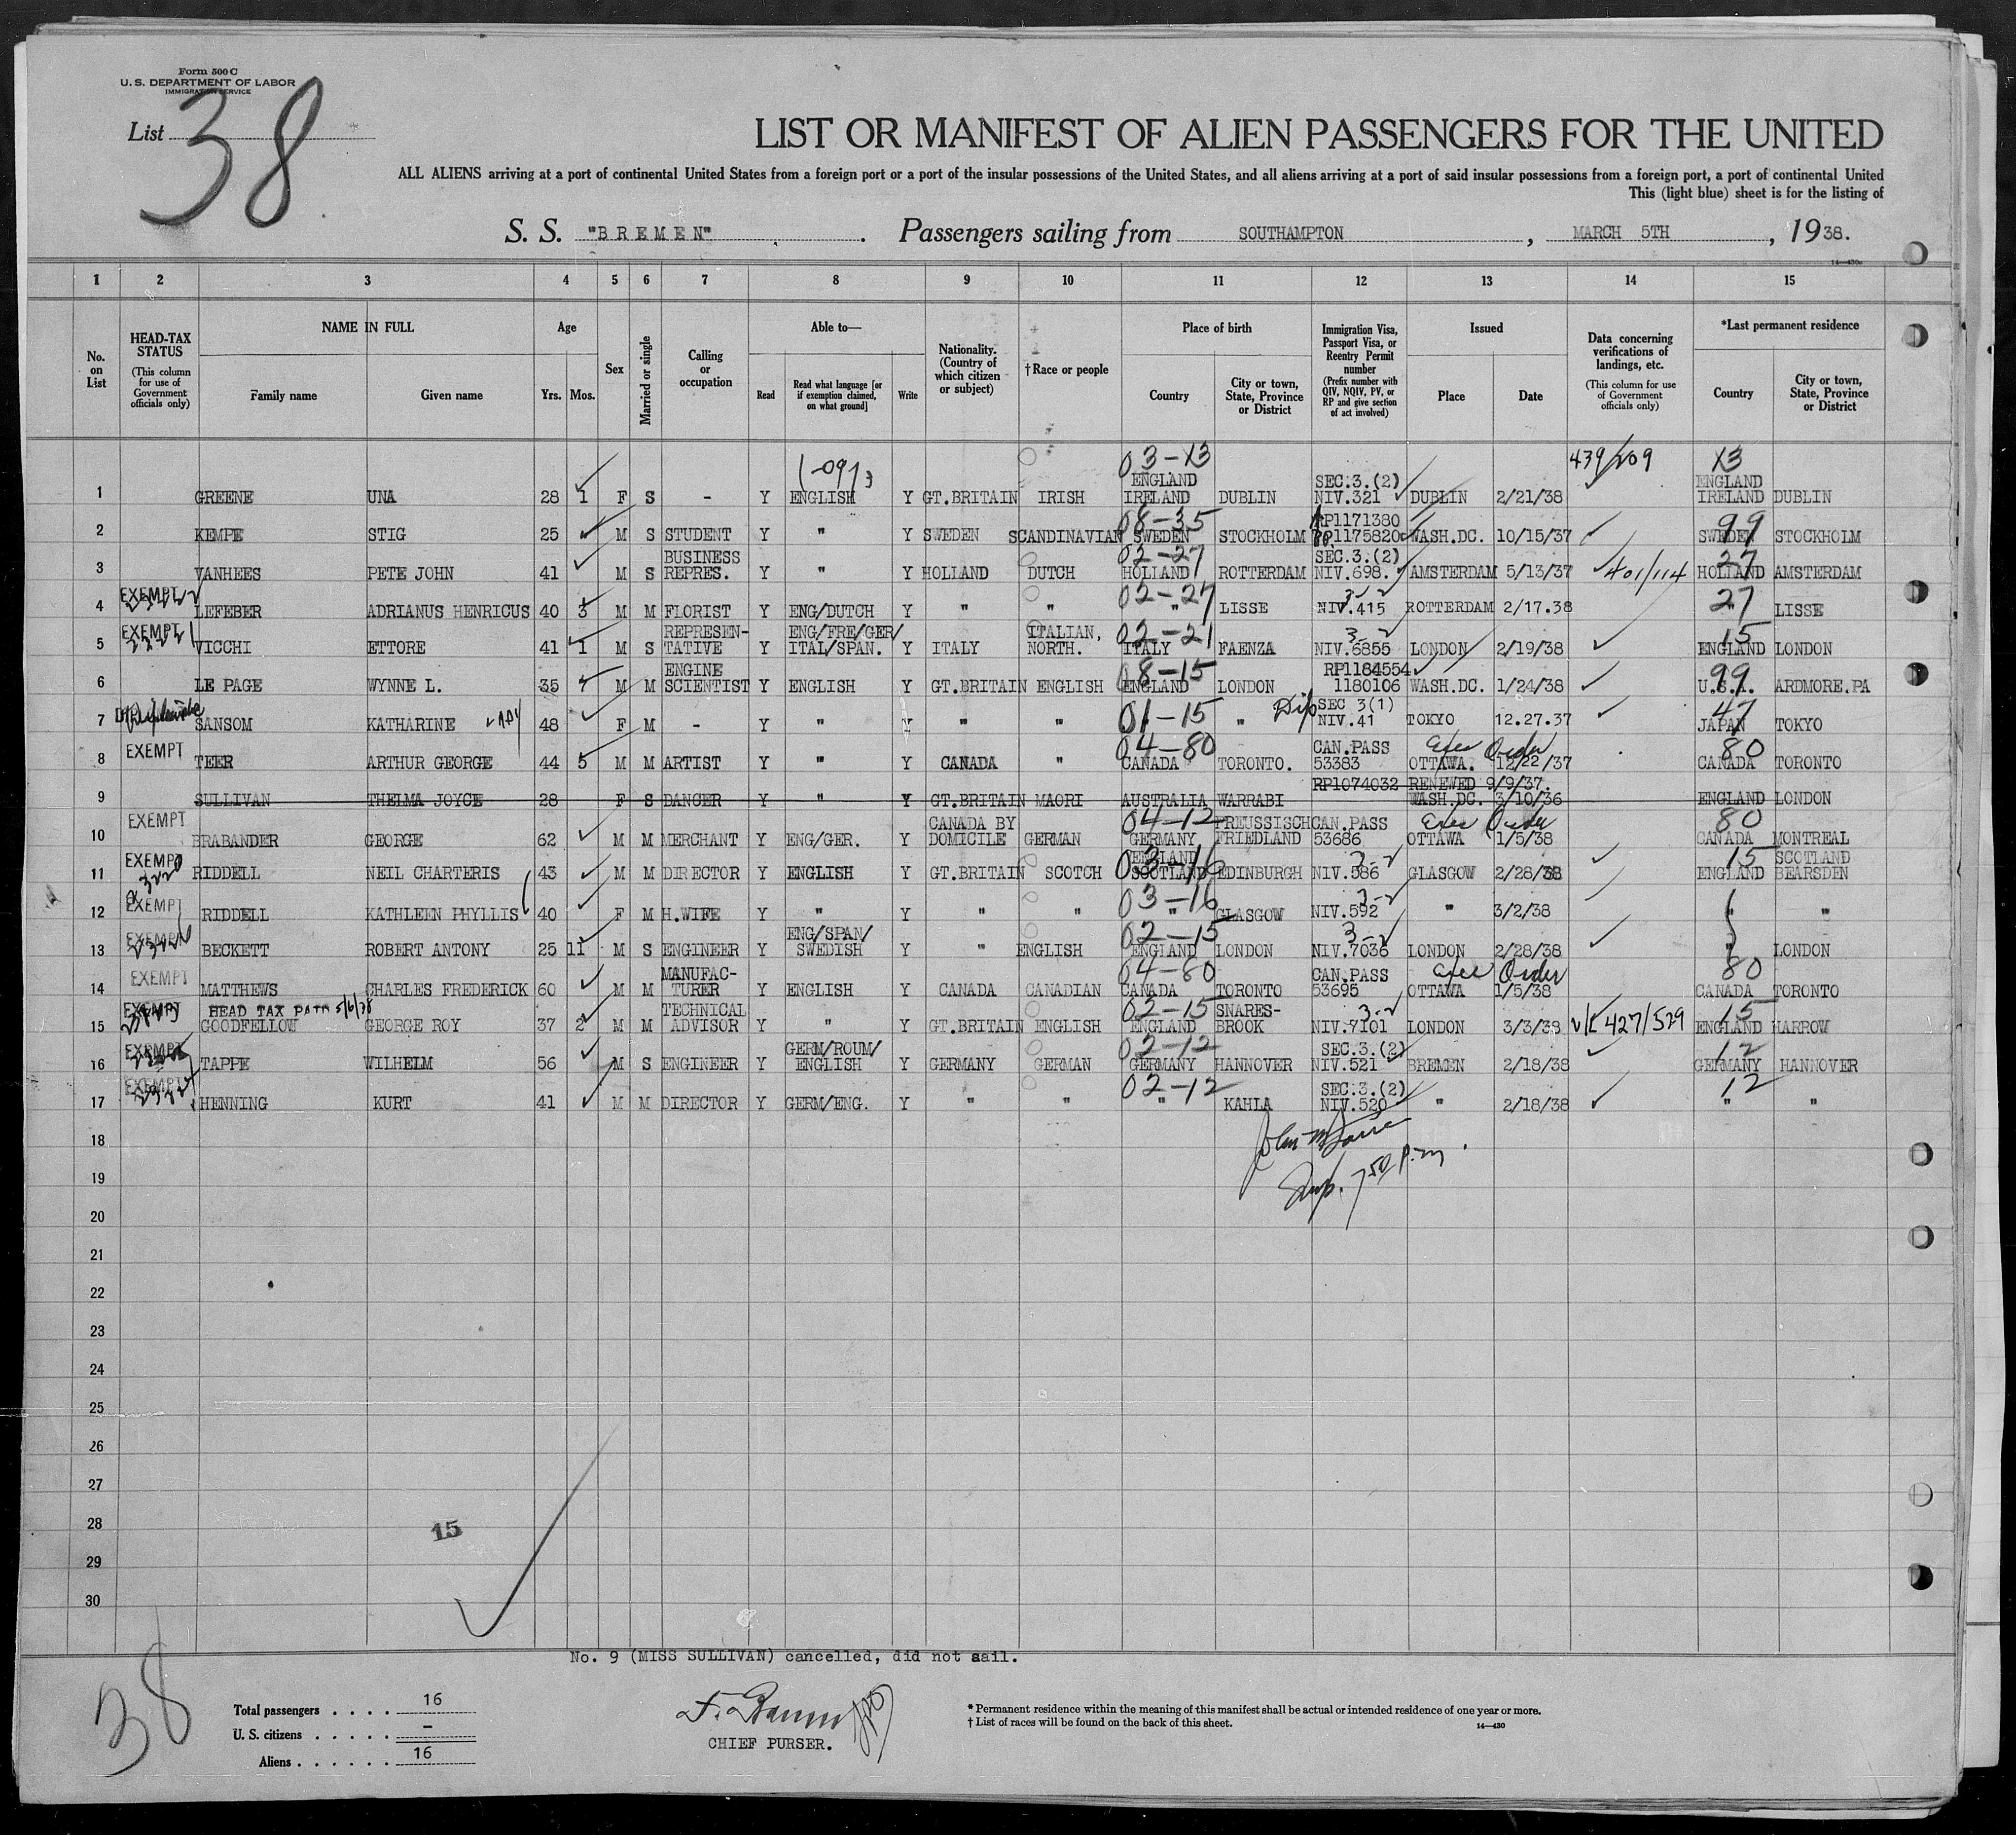 Form 500 C
U. S. DEPARTMENT OF LABOR
IMMIGRATION SERVICE
List 38
LIST OR MANIFEST OF ALIEN PASSENGERS FOR THE UNITED
ALL ALIENS arriving at a port of continental United States from a foreign port or a port of the insular possessions of the United States, and all aliens arriving at a port of said insular possessions from a foreign port, a port of continental United
This (light blue) sheet is for the listing of
S. S. "BREMEN" . Passengers sailing from SOUTHAMPTON , MARCH 5TH , 1938.
14—430
1 2 3 4 5 6 7 8 9 10 11 12 13 14 15
No. on List
HEAD-TAX STATUS (This column for use of Government officials only)
NAME IN FULL Family name Given name
Age Yrs. Mos.
Sex
Married or single
Calling or occupation
Able to— Read Read what language [or if exemption claimed, on what ground] Write
Nationality. (Country of which citizen or subject)
† Race or people
Place of birth Country City or town, State, Province or District
Immigration Visa, Passport Visa, or Reentry Permit number (Prefix number with QIV, NQIV, PV, or RP and give section of act involved)
Issued Place Date
Data concerning verifications of landings, etc. (This column for use of Government officials only)
*Last permanent residence Country City or town, State, Province or District
03-13 439/209 13
ENGLAND SEC.3.(2) ENGLAND
1 GREENE UNA 28 1 F S - Y ENGLISH Y GT.BRITAIN IRISH IRELAND DUBLIN NIV.321 DUBLIN 2/21/38 IRELAND DUBLIN
08-35 RP1171380 99
2 KEMPE STIG 25 M S STUDENT Y " Y SWEDEN SCANDINAVIAN SWEDEN STOCKHOLM RP1175820 WASH.DC. 10/15/37 SWEDEN STOCKHOLM
BUSINESS 02-27 SEC.3.(2) 27
3 VANHEES PETE JOHN 41 M S REPRES. Y " Y HOLLAND DUTCH HOLLAND ROTTERDAM NIV.698. AMSTERDAM 5/13/37 401/114 HOLLAND AMSTERDAM
EXEMPT 02-27 3-2 27
4 LEFEBER ADRIANUS HENRICUS 40 3 M M FLORIST Y ENG/DUTCH Y " " " LISSE NIV.415 ROTTERDAM 2/17.38 " LISSE
EXEMPT REPRESEN- ENG/FRE/GER/ ITALIAN, 02-21 3-2 15
5 VICCHI ETTORE 41 1 M S TATIVE Y ITAL/SPAN. Y ITALY NORTH. ITALY FAENZA NIV.6855 LONDON 2/19/38 ENGLAND LONDON
ENGINE 08-15 RP1184554 99
6 LE PAGE WYNNE L. 35 M M SCIENTIST Y ENGLISH Y GT.BRITAIN ENGLISH ENGLAND LONDON 1180106 WASH.DC. 1/24/38 U.S.A. ARDMORE.PA
01-15 Dip SEC 3(1) 47
7 SANSOM KATHARINE 48 F M - Y " Y " " " NIV.41 TOKYO 12.27.37 JAPAN TOKYO
EXEMPT 04-80 CAN.PASS Exec Order 80
8 TEER ARTHUR GEORGE 44 5 M M ARTIST Y " Y CANADA " CANADA TORONTO. 53383 OTTAWA. 12/22/37 CANADA TORONTO
RP1074032 RENEWED 9/9/37.
9 SULLIVAN THELMA JOYCE 28 F S DANCER Y " Y GT.BRITAIN MAORI AUSTRALIA WARRABI WASH.DC. 3/10/36 ENGLAND LONDON
EXEMPT CANADA BY 04-12 PREUSSISCH CAN.PASS Exec Order 80
10 BRABANDER GEORGE 62 M M MERCHANT Y ENG/GER. Y DOMICILE GERMAN GERMANY FRIEDLAND 53686 OTTAWA 1/5/38 CANADA MONTREAL
EXEMPT ENGLAND 03-16 3-2 15 SCOTLAND
11 RIDDELL NEIL CHARTERIS 43 M M DIRECTOR Y ENGLISH Y GT.BRITAIN SCOTCH SCOTLAND EDINBURGH NIV.586 GLASGOW 2/28/38 ENGLAND BEARSDEN
EXEMPT 03-16 3-2
12 RIDDELL KATHLEEN PHYLLIS 40 F M H.WIFE Y " Y " " " GLASGOW NIV.592 " 3/2/38 " "
EXEMPT ENG/SPAN/ 02-15 3-2
13 BECKETT ROBERT ANTONY 25 11 M S ENGINEER Y SWEDISH Y " ENGLISH ENGLAND LONDON NIV.7036 LONDON 2/28/38 " LONDON
EXEMPT MANUFAC- 04-80 CAN.PASS Exec Order 80
14 MATTHEWS CHARLES FREDERICK 60 M M TURER Y ENGLISH Y CANADA CANADIAN CANADA TORONTO 53695 OTTAWA 1/5/38 CANADA TORONTO
EXEMPT HEAD TAX PAID 5/6/38 TECHNICAL 02-15 SNARES- 3-2 15
15 GOODFELLOW GEORGE ROY 37 2 M M ADVISOR Y " Y GT.BRITAIN ENGLISH ENGLAND BROOK NIV.7101 LONDON 3/3/38 427/529 ENGLAND HARROW
EXEMPT GERM/ROUM/ 02-12 SEC.3.(2) 12
16 TAPPE WILHELM 56 M S ENGINEER Y ENGLISH Y GERMANY GERMAN GERMANY HANNOVER NIV.521 BREMEN 2/18/38 GERMANY HANNOVER
EXEMPT 02-12 SEC.3.(2) 12
17 HENNING KURT 41 M M DIRECTOR Y GERM/ENG. Y " " " KAHLA NIV.520 " 2/18/38 " "
18
19
7 50 P.m.
20
21
22
23
24
25
26
27
28
15
29
30
No. 9 (MISS SULLIVAN) cancelled, did not sail.
38
Total passengers . . . . 16
U. S. citizens . . . . . –
Aliens . . . . . . 16
CHIEF PURSER.
* Permanent residence within the meaning of this manifest shall be actual or intended residence of one year or more.
† List of races will be found on the back of this sheet.
14—430